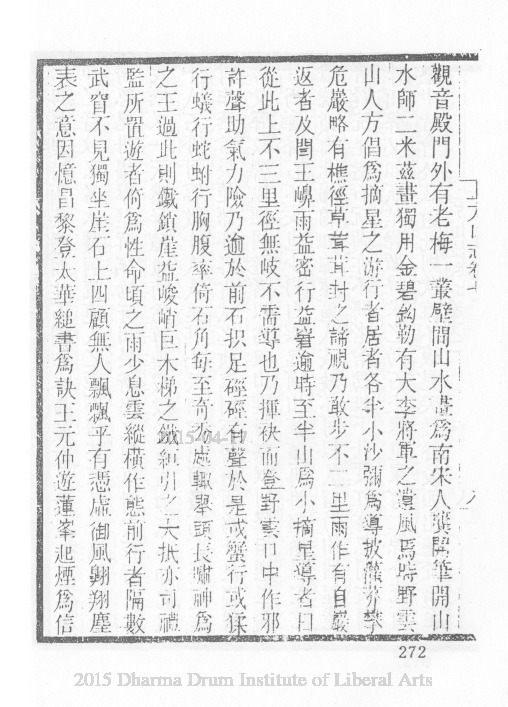 觀音殿門外有老梅一叢壁間山水畫為南宋人龔開筆開山
水師二米茲畫獨用金碧鈎勒有大李將軍之遺風焉時野雲
山人方倡為摘星之游行者居者各半小沙彌為導披蘿芬攀
危巖略有樵徑草茸茸封之諦視乃敢步不二里雨作有自巖
返者及閆王嶼雨益密行益窘逾時至半山為小摘星導者曰
從此上不三里徑無岐不需導也乃揮袂而登野雲口中作邪
許聲助氣力險乃逾於前石抧足硜硜有聲於是或蟹行或猱
行蟻行蛇蚹行胸腹率倚石角每至奇處輒舉頭長嘯神為
之王過此則鐵鎖崖益峻峭巨木梯之鐵絙引之大抵亦司禮
監所置遊者倚為性命頃之雨少息雲縱橫作態前行者隔數
武窅不見獨坐崖石上四顧無人飄飄乎有憑虛御風翺翔塵
表之意因憶昌黎登太華縋書為訣王元仲遊蓮峯起煙為信
2015-04-17
272
2015 Dharma Drum Institute of Liberal Arts